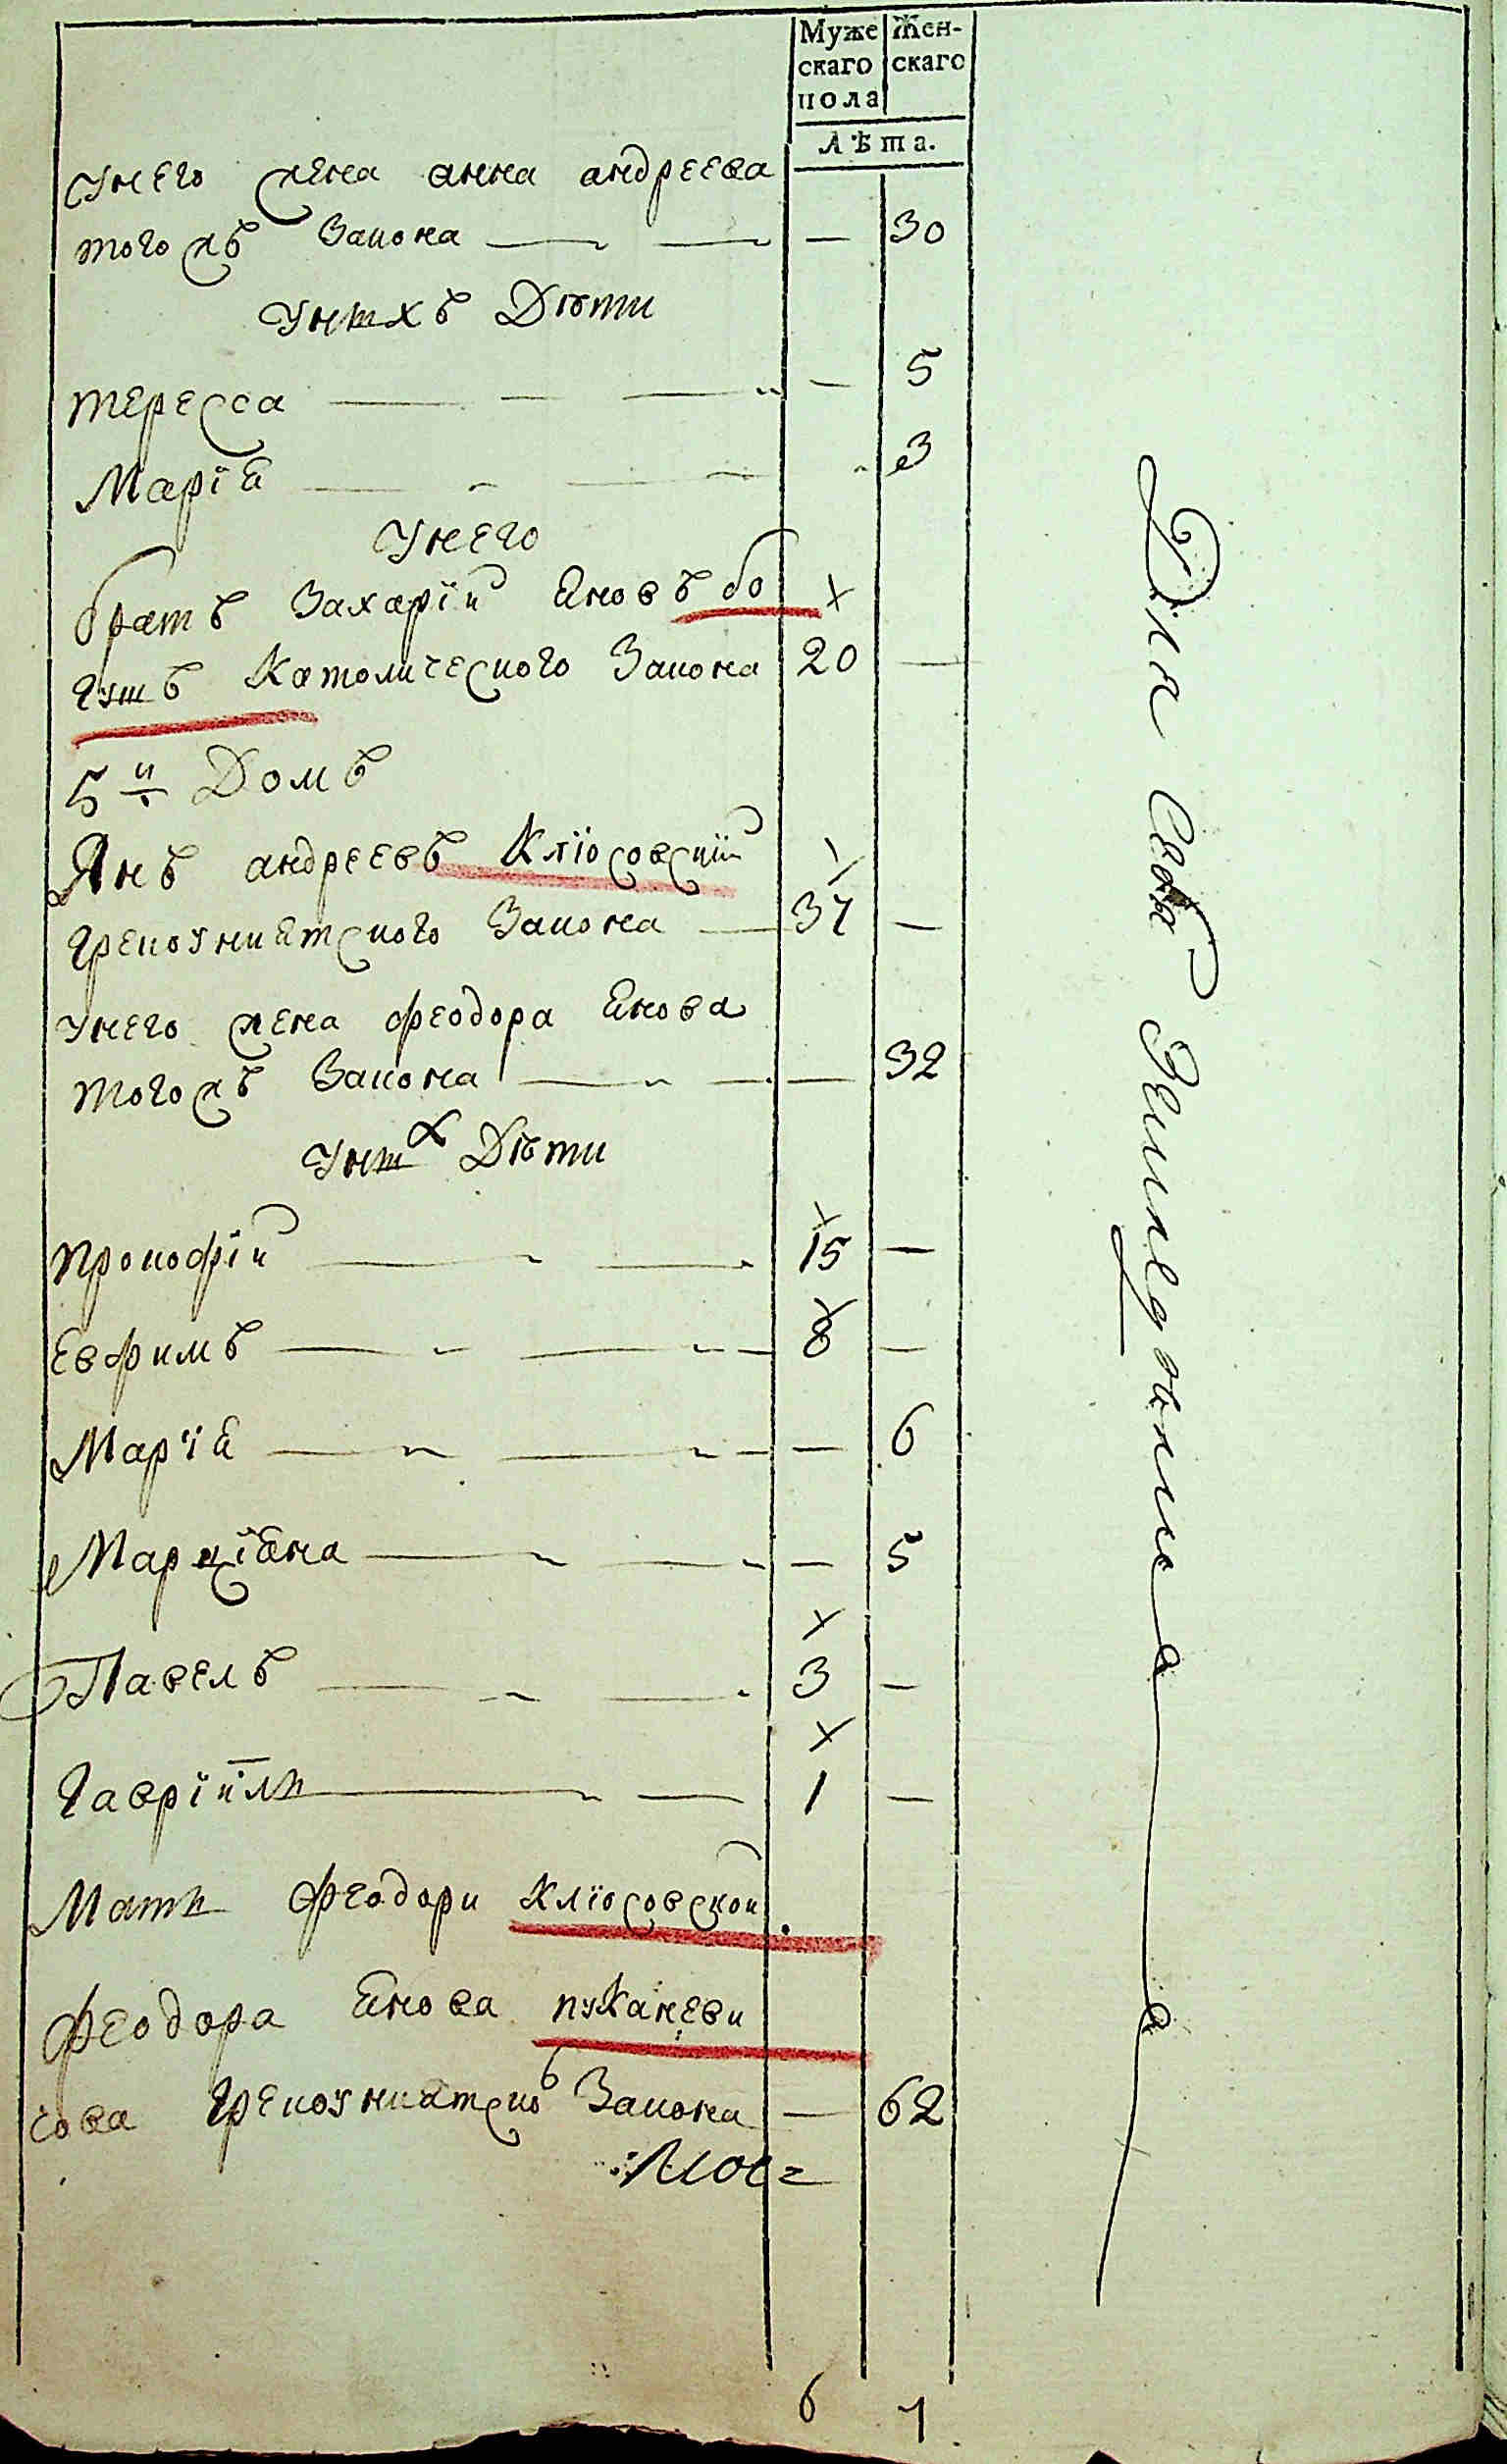 Муже
скаго
пола
Жен-
скаго
Лѣта.
Унего жена анна андреева
тогожъ Закона 30
Унихъ Дѣти
тересса 5
Марїя 3
Унего
братъ Захарїй Яновъ бо
гушъ Католического Закона 20
5й Домъ
Янъ андреевъ Клїосовскїй
грекоуниятского Закона 37
Унего жена феодора Янова
тогожъ Закона 32
Уних Дѣти
прокофїй 15
Евфимъ 8
Марїя 6
Марцїяна 5
Павелъ 3
Гаврїилъ 1
Мать феодори Клїосовской
феодора Янова пуканеви
чова грекоуниатско Закона 62
6 7